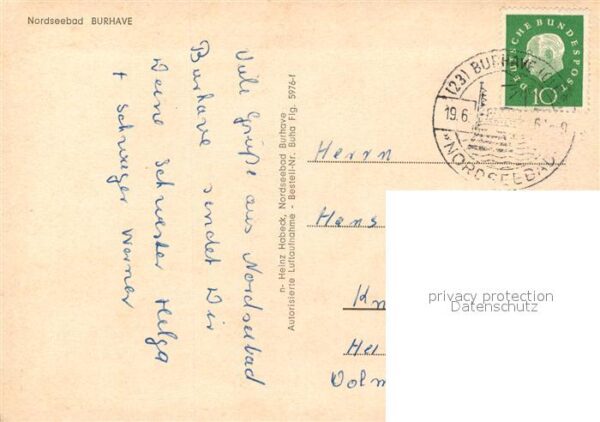 Nordseebad BURHAVE
Viele Grüße aus Nordseebad
Burhave sendet Dir
Deine Schwester Helga
+ Schwager Werner
n- Heinz Habeck, Nordseebad Burhave
Autorisierte Luftaufnahme - Bestell-Nr. Buha Flg. 5976-f
DEUTSCHE BUNDESPOST
10
(23) BURHAVE
19.6.
NORDSEEBAD
Herrn
Hans
Kn
Hei
Volm
privacy protection
Datenschutz